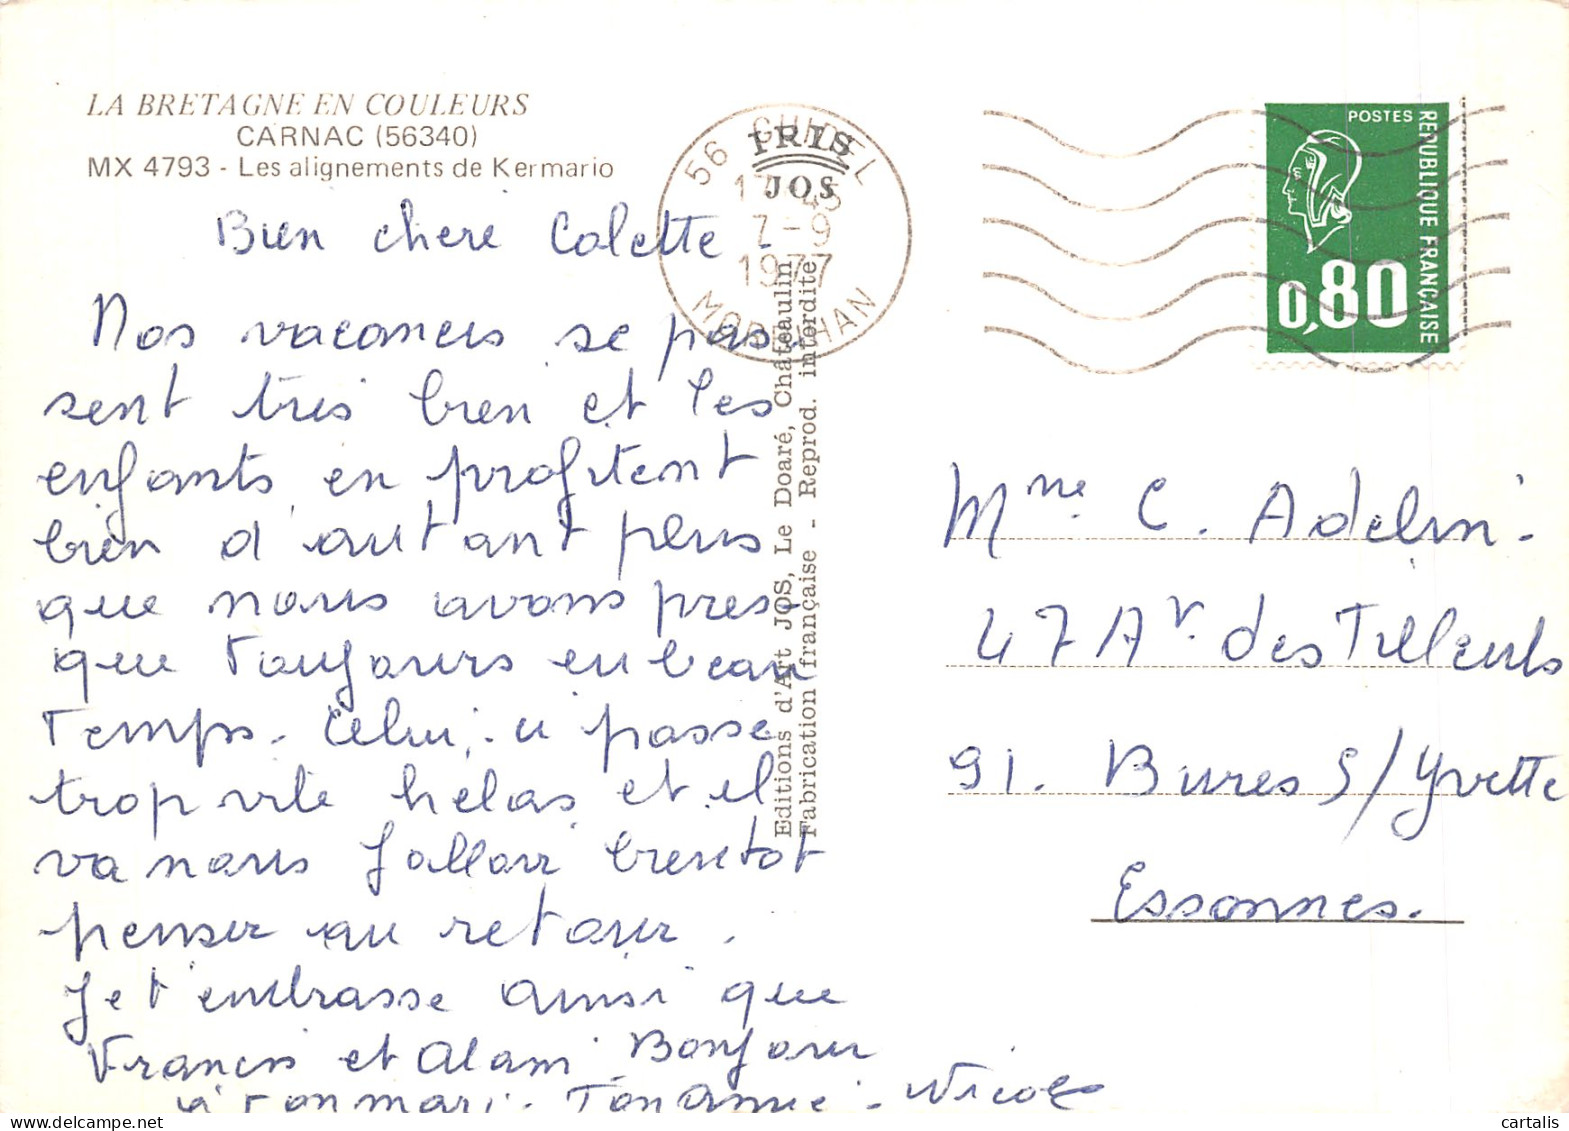 LA BRETAGNE EN COULEURS
CARNAC (56340)
MX 4793 - Les alignements de Kermario
Bien chere Colette -
Nos vacances se pas-
sent très bien et les
enfants en profitent
bien d'autant plus
que nous avons pres-
que toujours eu beau
temps. Celui-ci passe
trop vite helas et il
va nous falloir bientot
penser au retour.
Je t'embrasse ainsi que
Francis et Alain. Bonjour
à ton mari. Ton Amie - Nicole
56 GUIDEL
17 45
7-9
1977
MORBIHAN
IRIS
JOS
Editions d'Art JOS, Le Doaré, Châteaulin
Fabrication française - Reprod. interdite
POSTES
REPUBLIQUE FRANÇAISE
0,80
Mme C. Adelin.
47 Av. des Tilleuls
91. Bures S/Yvette
Essonnes.
cartalis